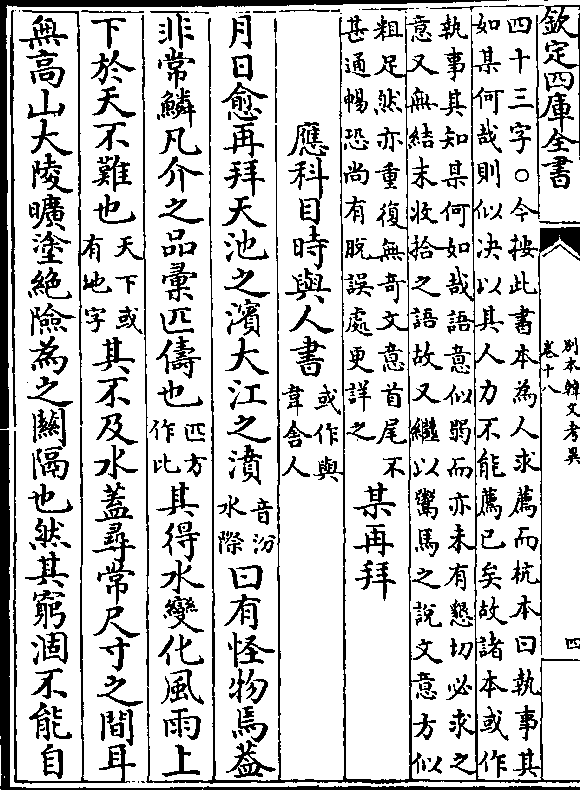 欽定四庫全書
別本韓文考異
卷十八
四
四十三字○今按此書本為人求薦而杭本曰執事其
如某何哉則似决以其人力不能薦已矣故諸本或作
執事其知某何如哉語意似弱而亦未有懇切必求之
意又無結末收拾之語故又繼以鸞馬之說文意方似
粗足然亦重復無奇文意首尾不
甚通暢恐尚有脫誤處更詳之
某再拜
應科目時與人書
或作與
韋舍人
月日愈再拜天池之濱大江之濆
音汾
水際
曰有怪物焉葢
非常鱗凡介之品彙匹儔也
匹方
作比
其得水變化風雨上
下於天不難也
天下或
有地字
其不及水蓋尋常尺寸之間耳
無高山大陵曠塗絶險為之關隔也然其窮涸不能自